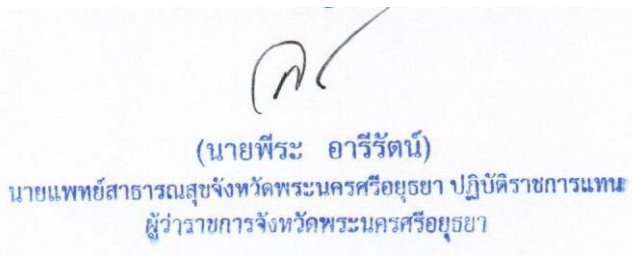 (นายพีระ อารีรัตน์)
นายแพทย์สาธารณสุขจังหวัดพระนครศรีอยุธยา ปฏิบัติราชการแทน
ผู้ว่าราชการจังหวัดพระนครศรีอยุธยา